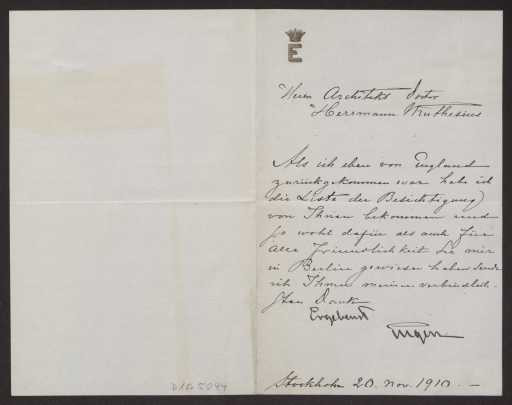 E
Herrn Architekt doctor
Herrmann Muthesius
Als ich eben von England
zurückgekommen war habe ich
die Liste der Besichtigung
von Ihnen bekommen und
so wohl dafür als auch für
alle Freundlichkeit die mir
in Berlin gewiesen haben sende
ich Ihnen meinen verbindlich-
sten Dank
Ergebenst
Eugen
Stockholm 20. Nov. 1910. —